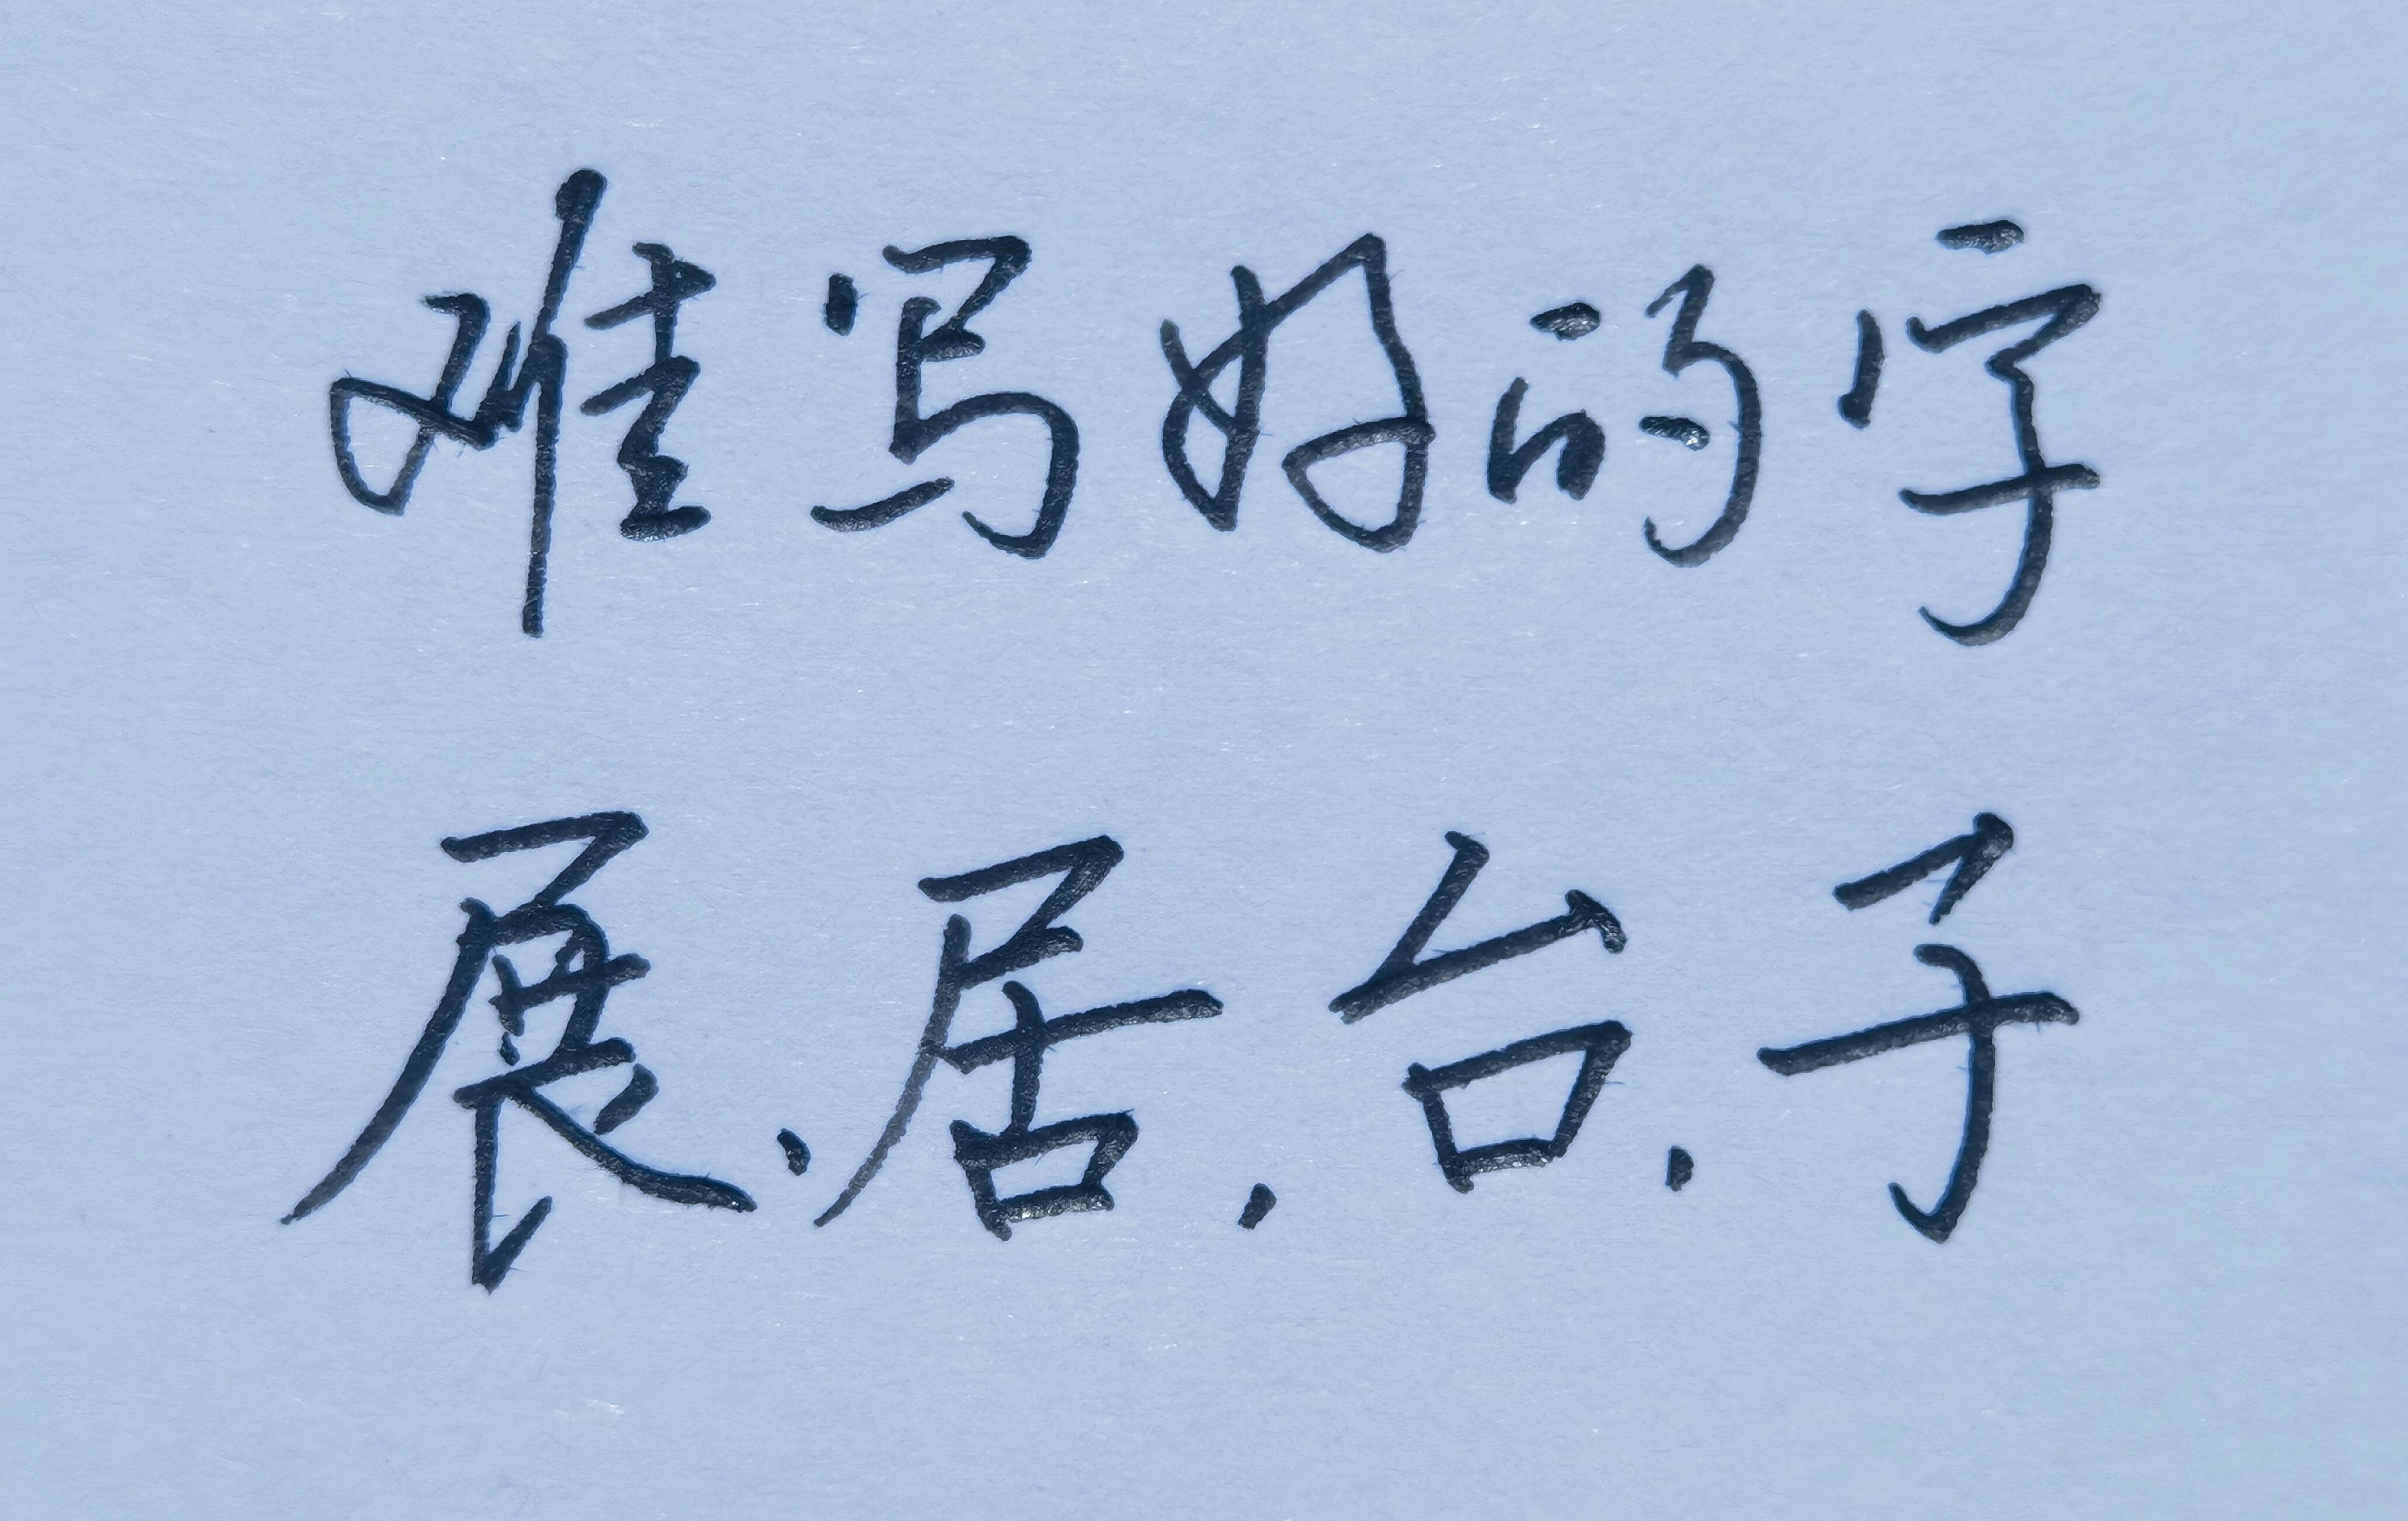 难写好的字
展、居、台、子